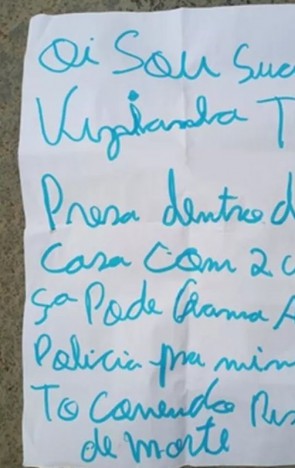 Oi Sou Sua
Viziansha T
Presa dentro d
Casa Com 2 c
ça Pode Chama A
Policia pra mim
To Correndo Ris
de morte